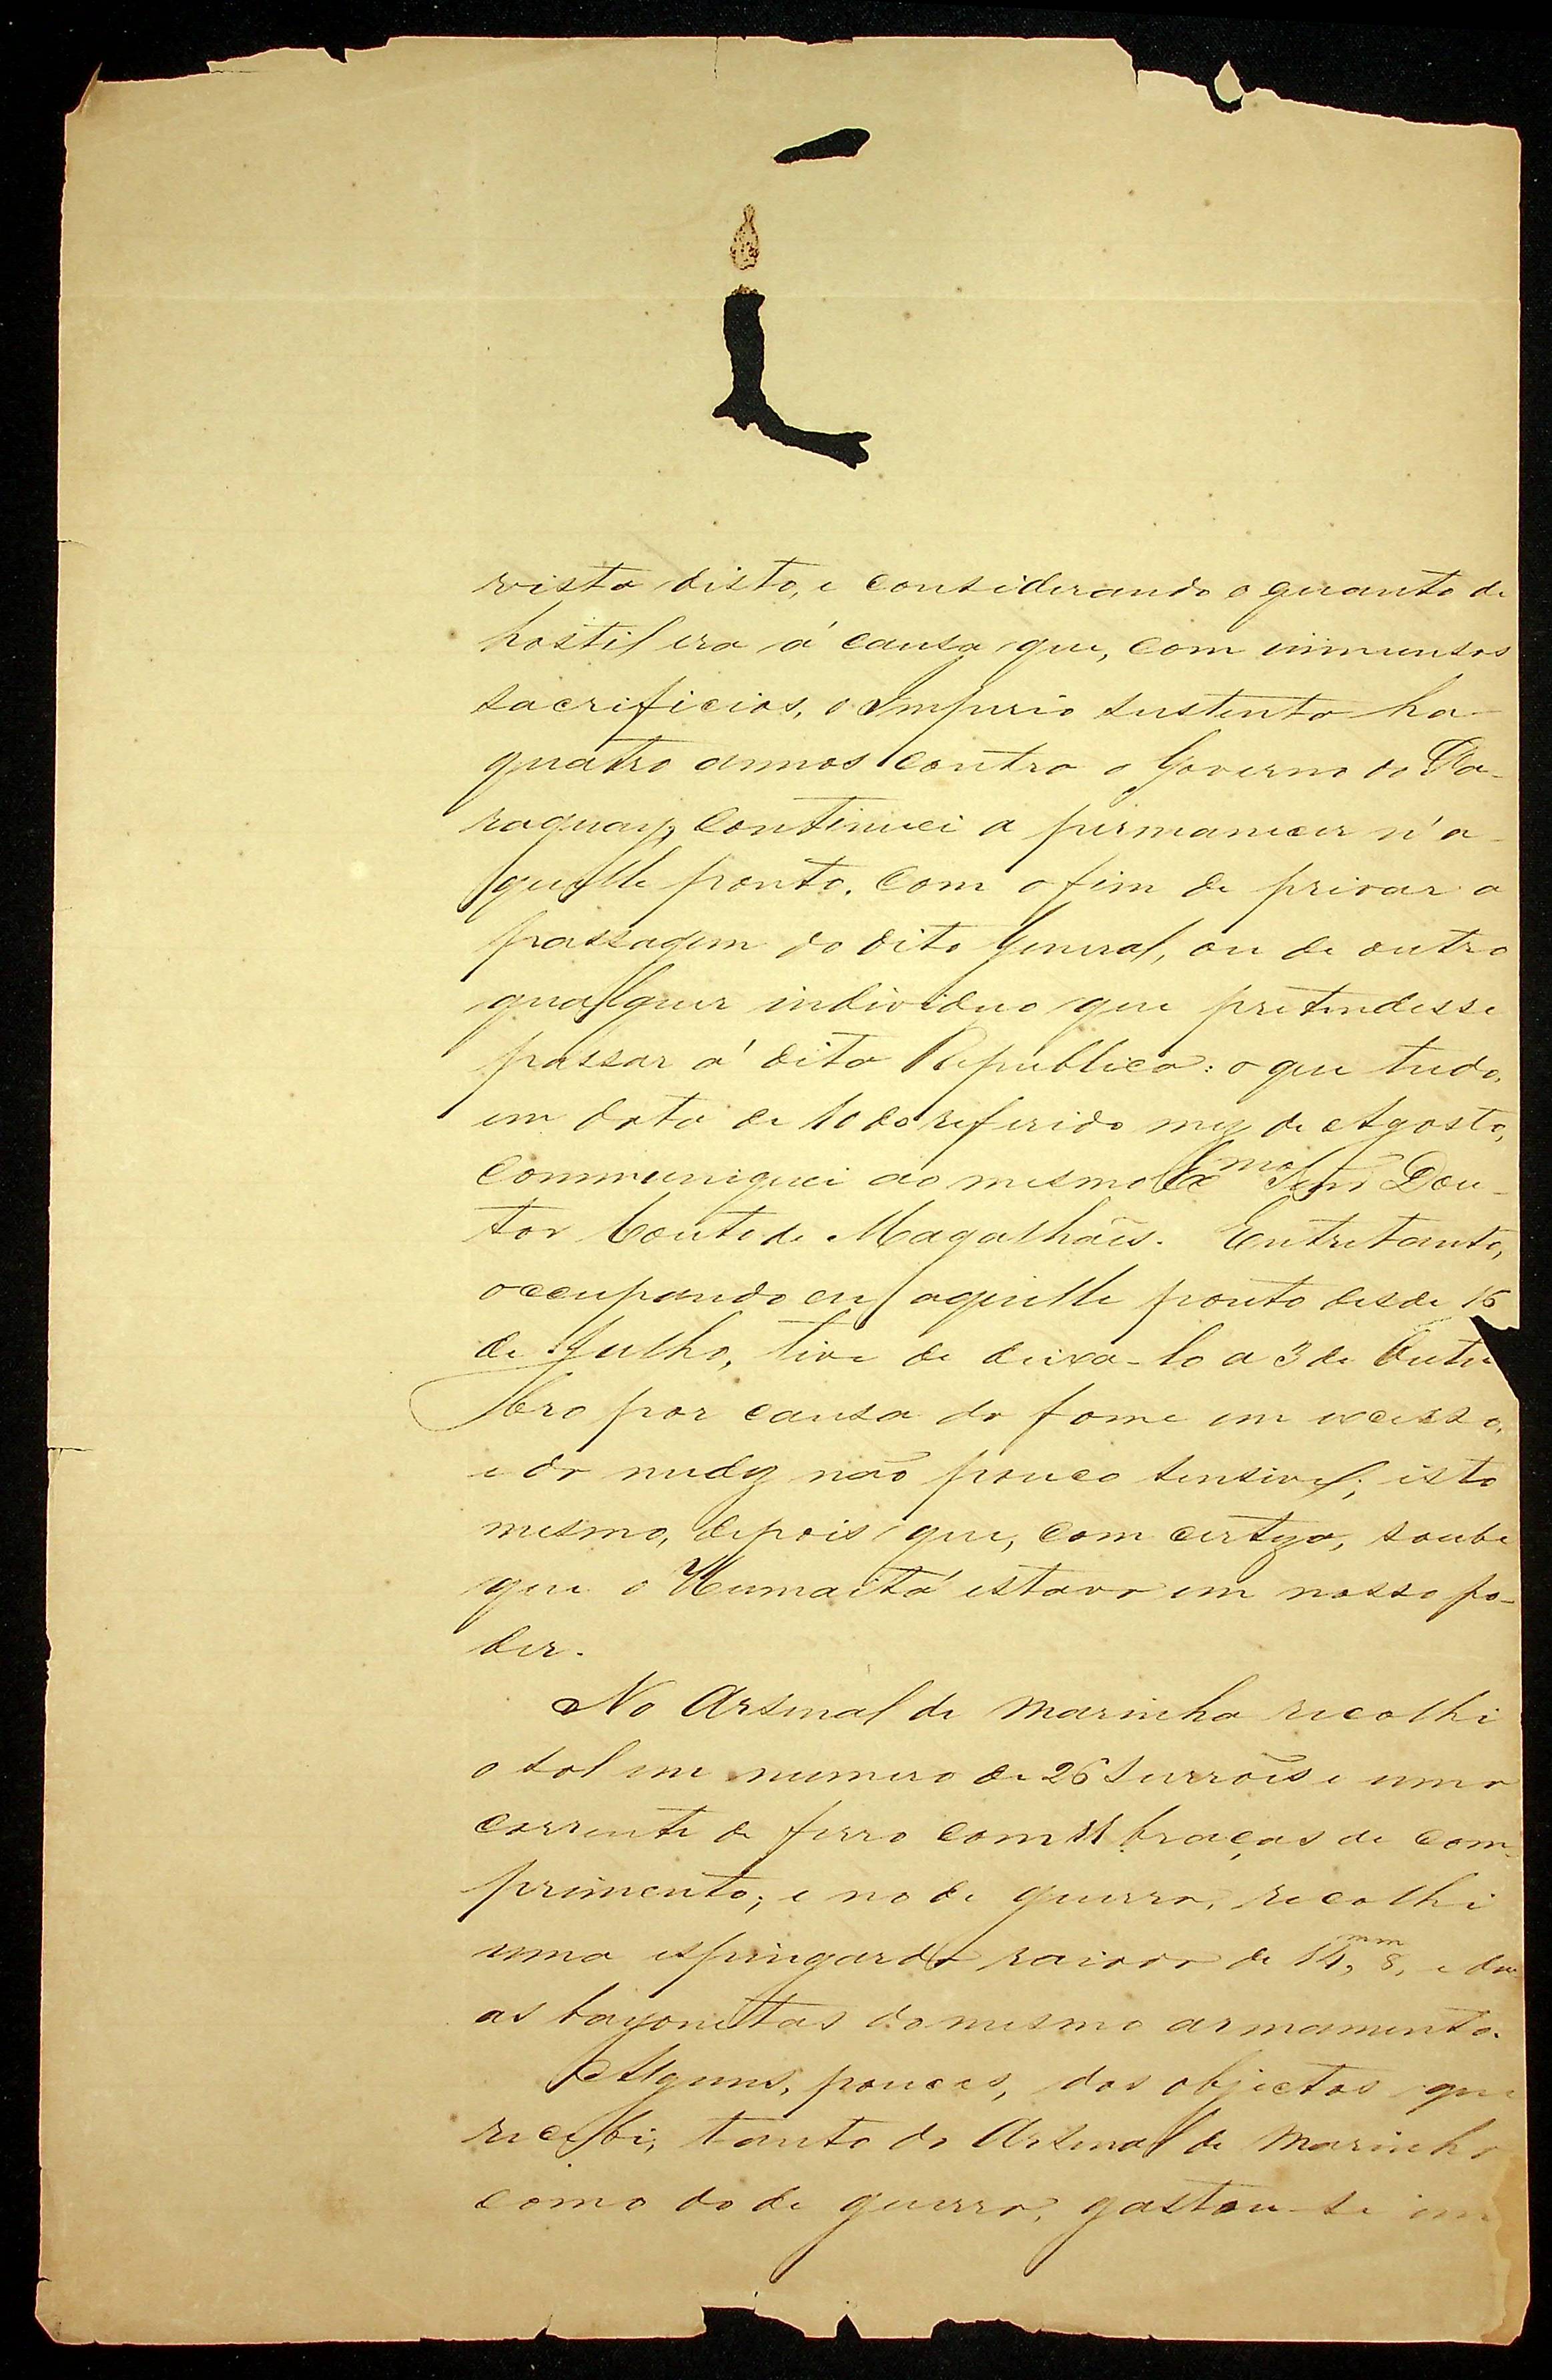 vista disto, e considerando o quanto de
hostil era á causa que, com immensos
sacrificios, o Imperio sustenta ha
quatro annos contra o Governo do Pa-
raguay, continuei a permanecer n'a-
quelle ponto, com o fim de privar a
passagem do dito General, ou de outro
qualquer individuo que pretendesse
passar á dita Republica: o que tudo,
em data de 10 do referido mez de Agosto,
communiquei ao mesmo Exmo Senr Dou-
tor Couto de Magalhães. Entretanto,
occupando eu aquelle ponto desde 15
de Julho, tive de deixa-lo a 3 de Outu
bro por causa da fome em excesso,
e da nudez não pouco sensivel; isto
mesmo, depois que, com certeza, soube
que o Humaitá estava em nosso po-
der.
No Arsenal de Marinha recolhi
o sal em numero de 26 surrões e uma
corrente de ferro com 11 braças de com-
primento; e no de guerra, recolhi
uma espingarda raiada de 14,mm 8, e du
as bayonetas do mesmo armamento.
Alguns, poucos, dos objectos que
recebi, tanto do Arsenal de Marinha
como do de guerra, gastou-se em